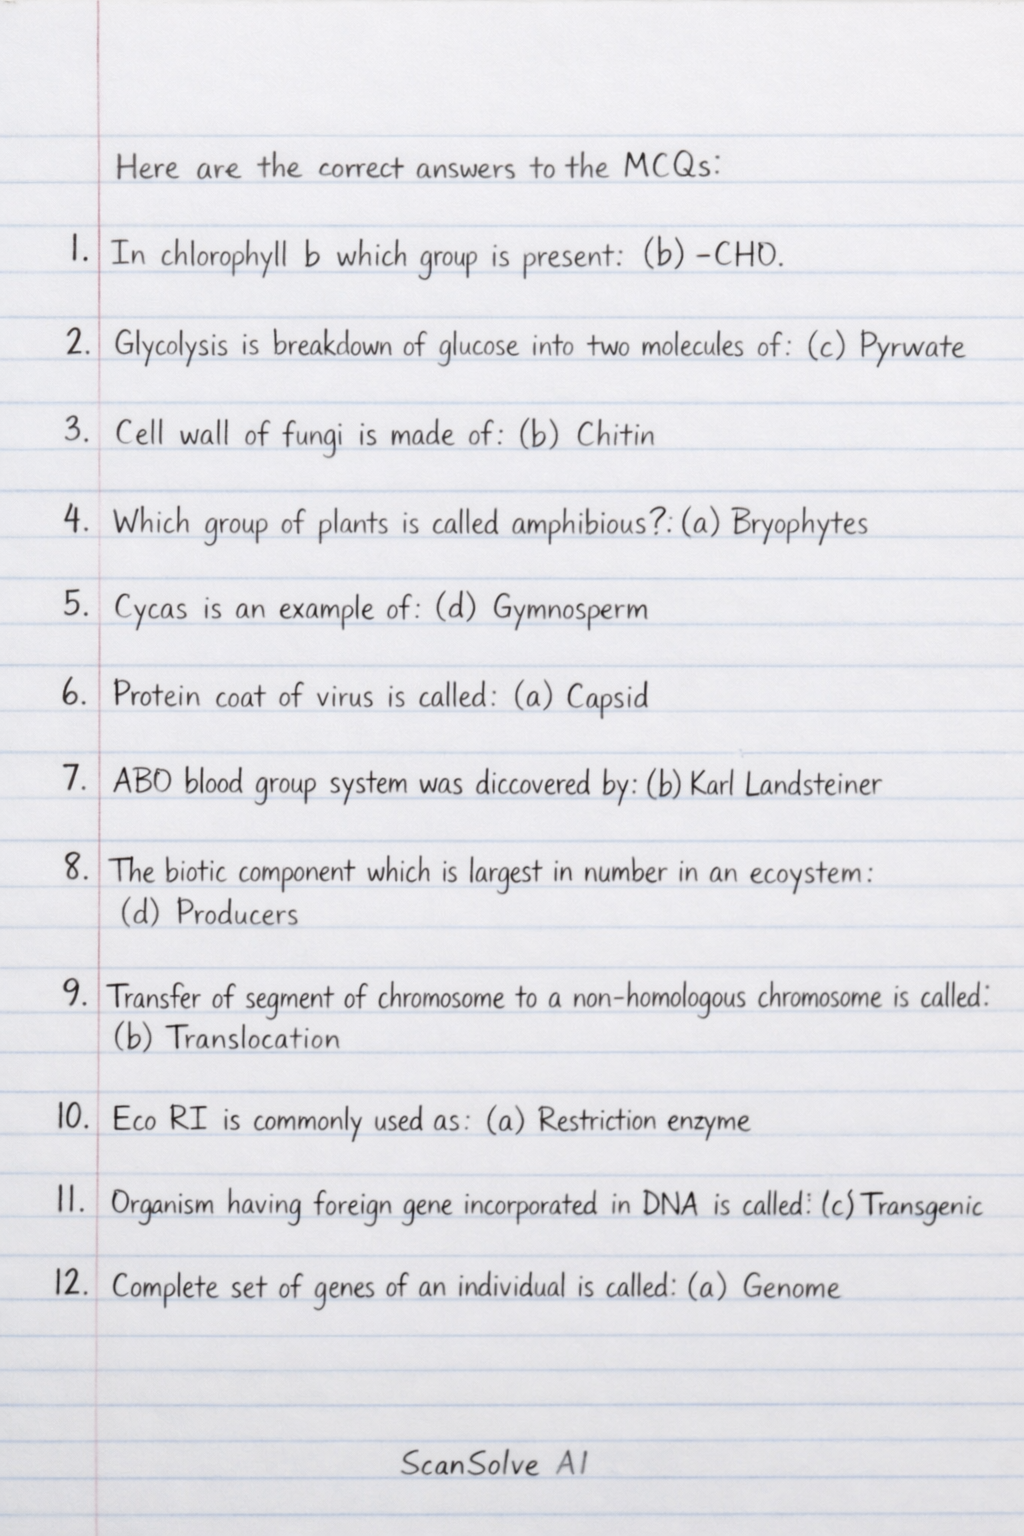 Here are the correct answers to the MCQs:
1. In chlorophyll b which group is present: (b) -CHO.
2. Glycolysis is breakdown of glucose into two molecules of: (c) Pyrwate
3. Cell wall of fungi is made of: (b) Chitin
4. Which group of plants is called amphibious?: (a) Bryophytes
5. Cycas is an example of: (d) Gymnosperm
6. Protein coat of virus is called: (a) Capsid
7. ABO blood group system was diccovered by: (b) Karl Landsteiner
8. The biotic component which is largest in number in an ecoystem:
(d) Producers
9. Transfer of segment of chromosome to a non-homologous chromosome is called:
(b) Translocation
10. Eco RI is commonly used as: (a) Restriction enzyme
11. Organism having foreign gene incorporated in DNA is called: (c) Transgenic
12. Complete set of genes of an individual is called: (a) Genome
ScanSolve AI